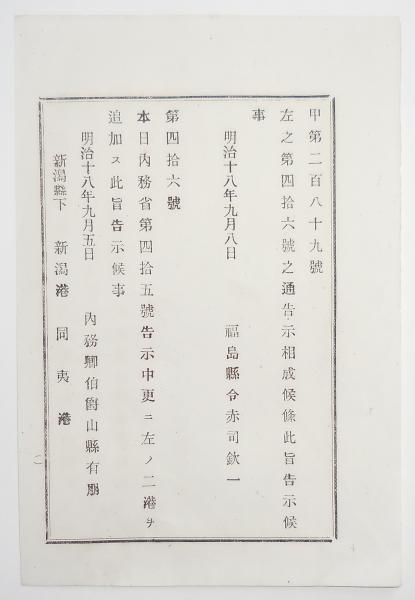 甲第二百八十九號
左之第四拾六號之通告示相成候條此旨告示候
事
明治十八年九月八日　福島縣令赤司欽一
第四拾六號
本日內務省第四拾五號告示中更ニ左ノ二港ヲ
追加ス此旨告示候事
明治十八年九月五日　內務卿伯爵山縣有朋
新潟縣下　新潟港　同　夷　港